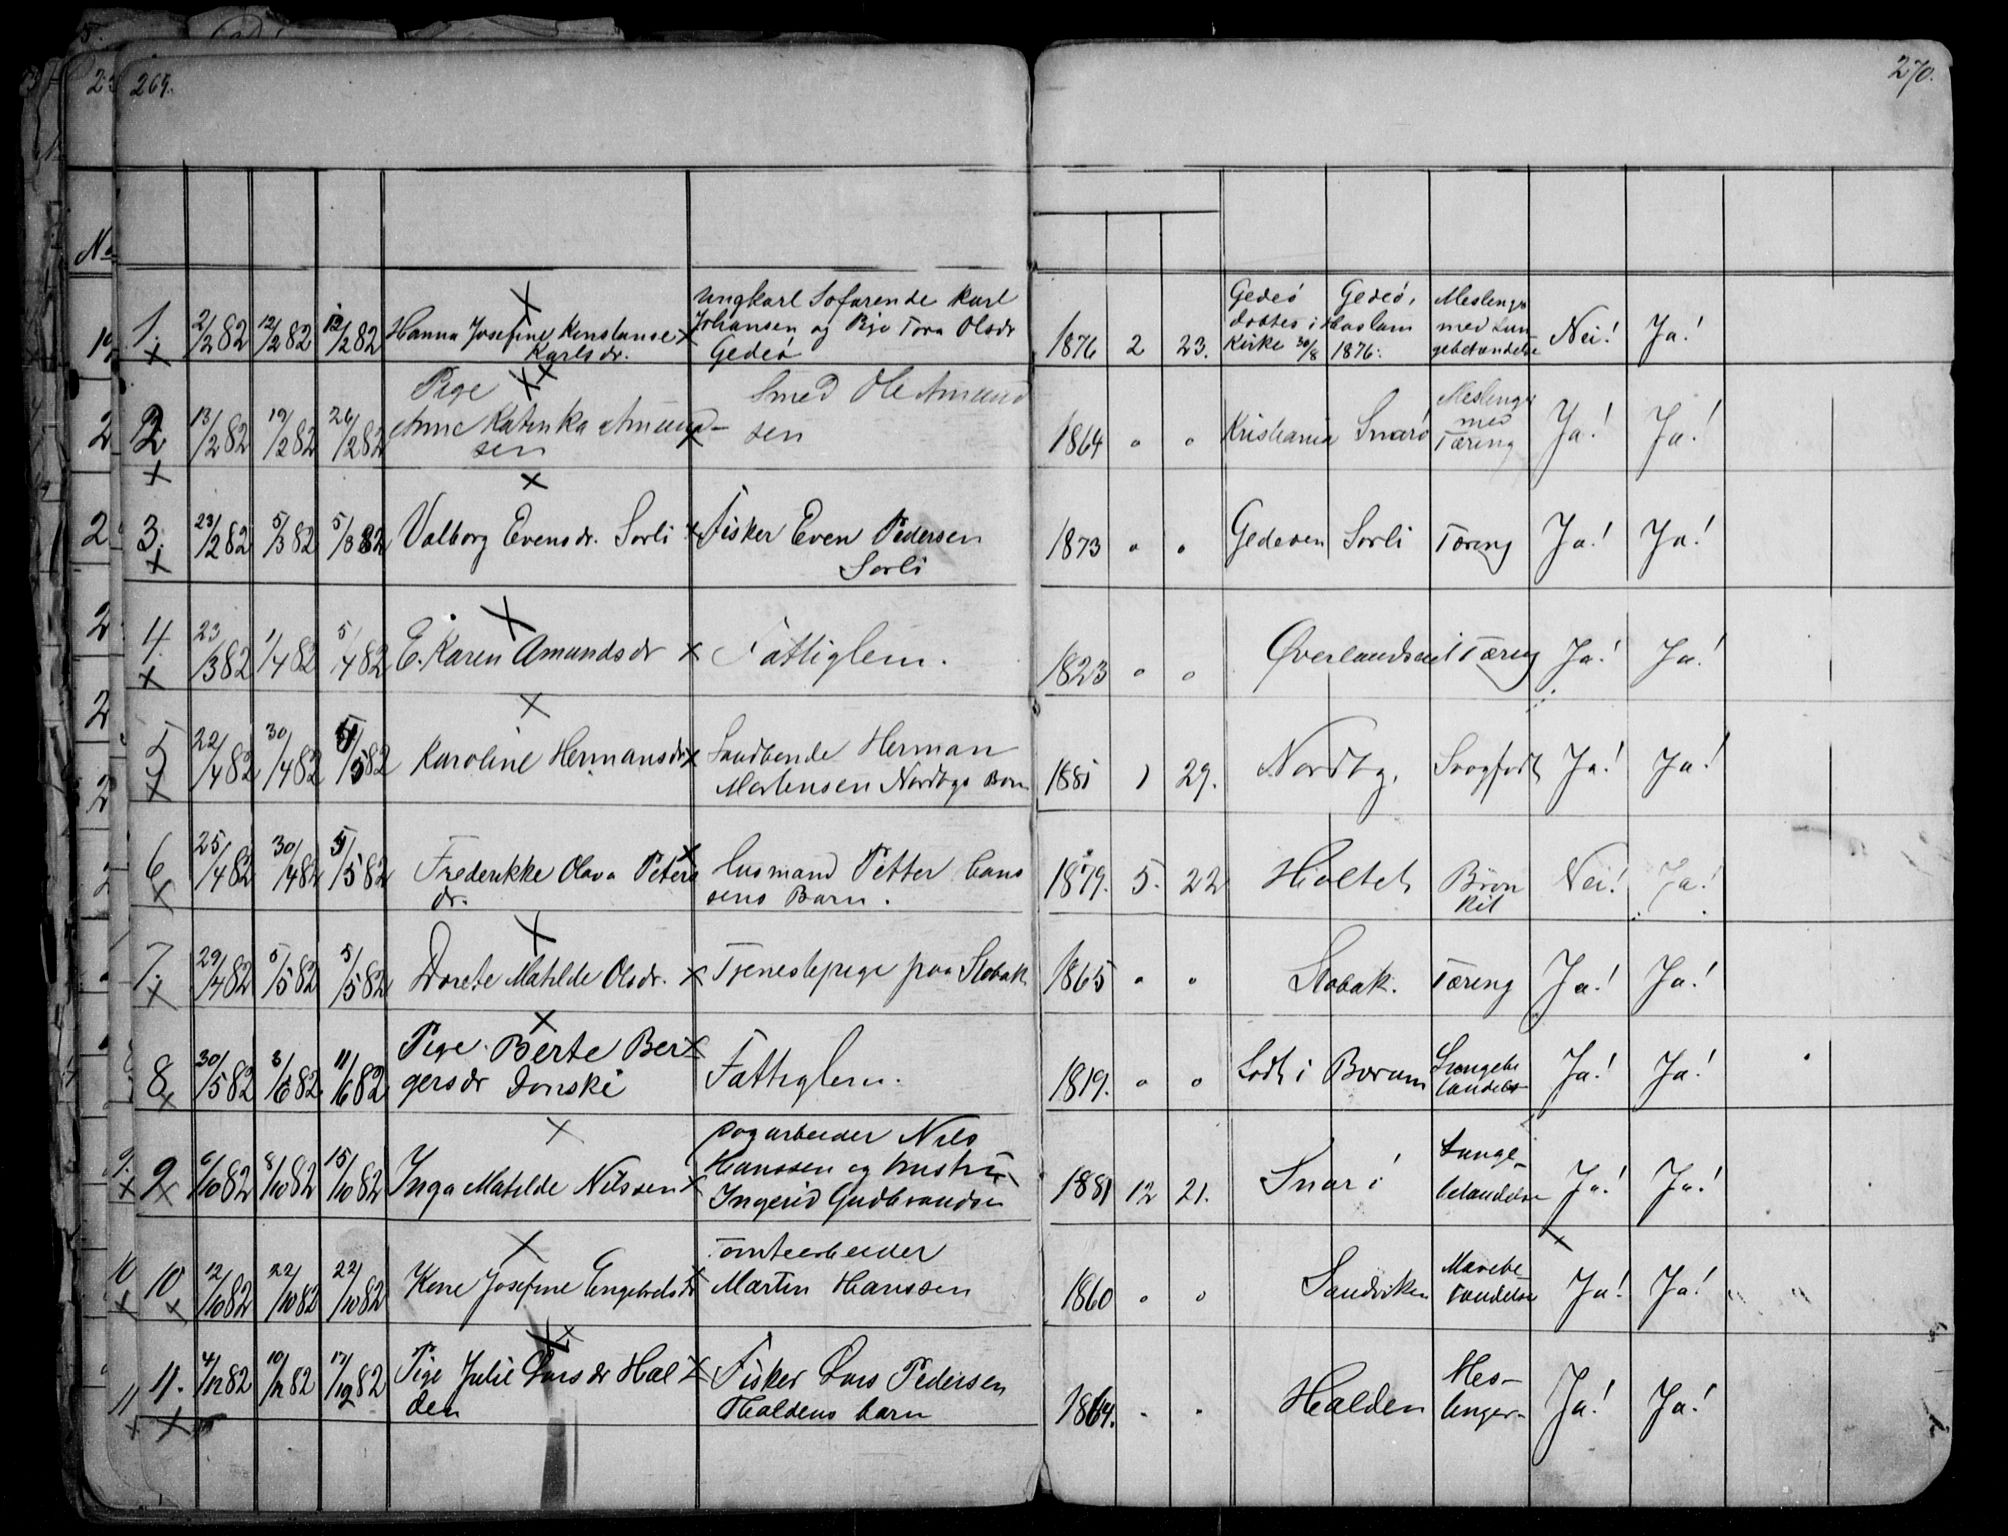 269.
270.
No
1. 2/2 82 12/2 82 12/2 82 Hanna Josefine Konstanse Karlsdr. Ungkarl Søfarende Karl Johansen og Pige Tora Olsdr Gedeø 1876 2 23. Gedeø døbtes i Haslum Kirke 30/8 1876. Gedeø, Meslinger med Lungebetændelse Nei! Ja!
2 13/2 82 19/2 82 26/2 82 Pige Anne Katinka Amundsen Smed Ole Amundsen 1864 " " Kristiania Snarø Meslinger med Tæring Ja! Ja!
3. 23/2 82 5/3 82 5/3 82 Valborg Evensdr. Sørli Fisker Even Pedersen Sørli 1873 " " Gedeøen Sørli Tæring Ja! Ja!
4. 23/3 82 1/4 82 5/4 82 E. Karen Amundsdr Fattiglem. 1823 " " Øverlandseiet Tæring Ja! Ja!
5 22/4 82 30/4 82 /5 82 Karoline Hermansdr Hermansen Mortensen Nordbys Barn 1881 1 29. Nordby. Svagfødt Ja! Ja!
6 25/4 82 30/4 82 5/5 82 Frederikke Olava Petersdr. Husmand Petter Hanssens Barn. 1879. 5. 22 Holtet Bronkit Nei! Ja!
7. 29/4 82 5/5 82 5/5 82 Dorete Matilde Olsdr. Tjenestepige paa Stabæk 1865 " " Stabæk. Tæring Ja! Ja!
8 30/5 82 3/6 82 11/6 82 Pige Berte Bergersdr Donski Fattiglem. 1819. " " Født i Bærum Lungebetændelse Ja! Ja!
9. 9 6/10 82 8/10 82 15/10 82 Inga Matilde Nilssen Dagarbeider Nils Hanssen og hustru Ingerid Gudbrandsen 1881 12 21. Snarø Lungebetændelse Ja! Ja!
10 10. 12/10 82 22/10 82 22/10 82 Kone Josefine Engebretsdr Tomtearbeider Martin Hanssen 1860 " " Sandviken Mavebetændelse Ja! Ja!
11 11. 4/12 82 10/12 82 17/12 82 Pige Julie Larsdr Halden Fisker Lars Pedersen Haldens barn 1864. " " Halden Meslinger Ja! Ja!